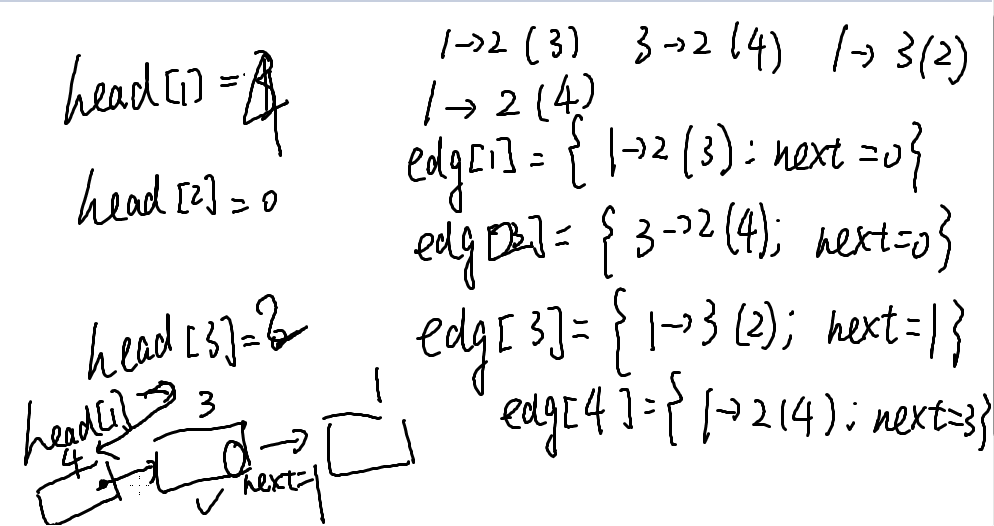 1→2 (3) 3→2 (4) 1→3 (2)
1→2 (4)
head[1]=4
edg[1]={1→2 (3); next=0}
head[2]=0
edg[2]={3→2 (4); next=0}
head[3]=2
edg[3]={1→3 (2); next=1}
edg[4]={1→2 (4); next=3}
head[1]→
4 3 1
next=1